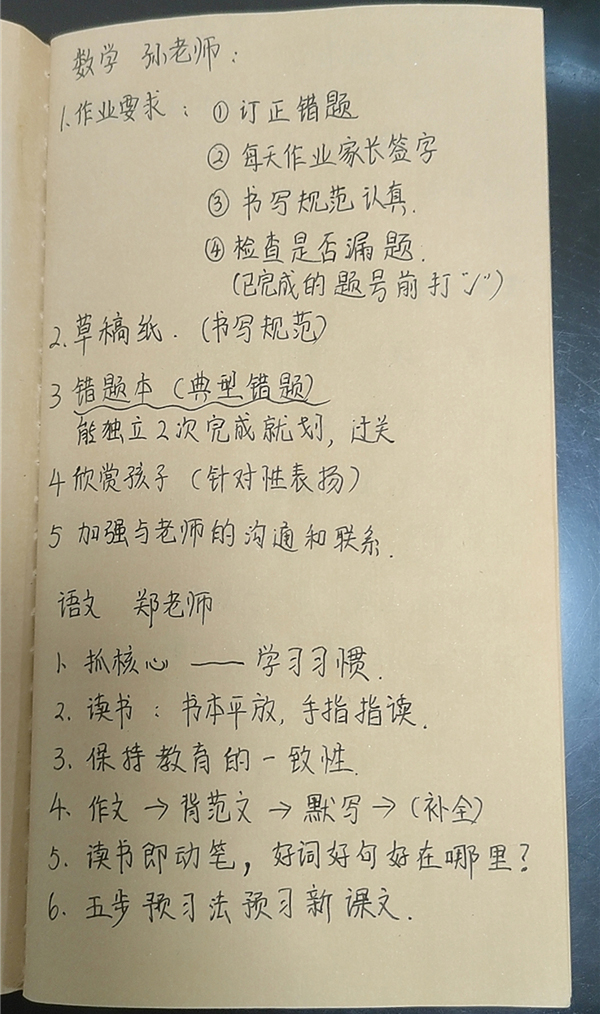 数学 孙老师:
1.作业要求: ①订正错题
②每天作业家长签字
③书写规范认真.
④检查是否漏题.
(已完成的题号前打“√”)
2.草稿纸.(书写规范)
3 错题本(典型错题)
能独立2次完成就划,过关
4 欣赏孩子(针对性表扬)
5 加强与老师的沟通和联系.
语文 郑老师
1. 抓核心 —— 学习习惯.
2. 读书: 书本平放,手指指读.
3. 保持教育的一致性.
4. 作文→背范文→默写→(补全)
5. 读书即动笔,好词好句好在哪里?
6. 五步预习法预习新课文.